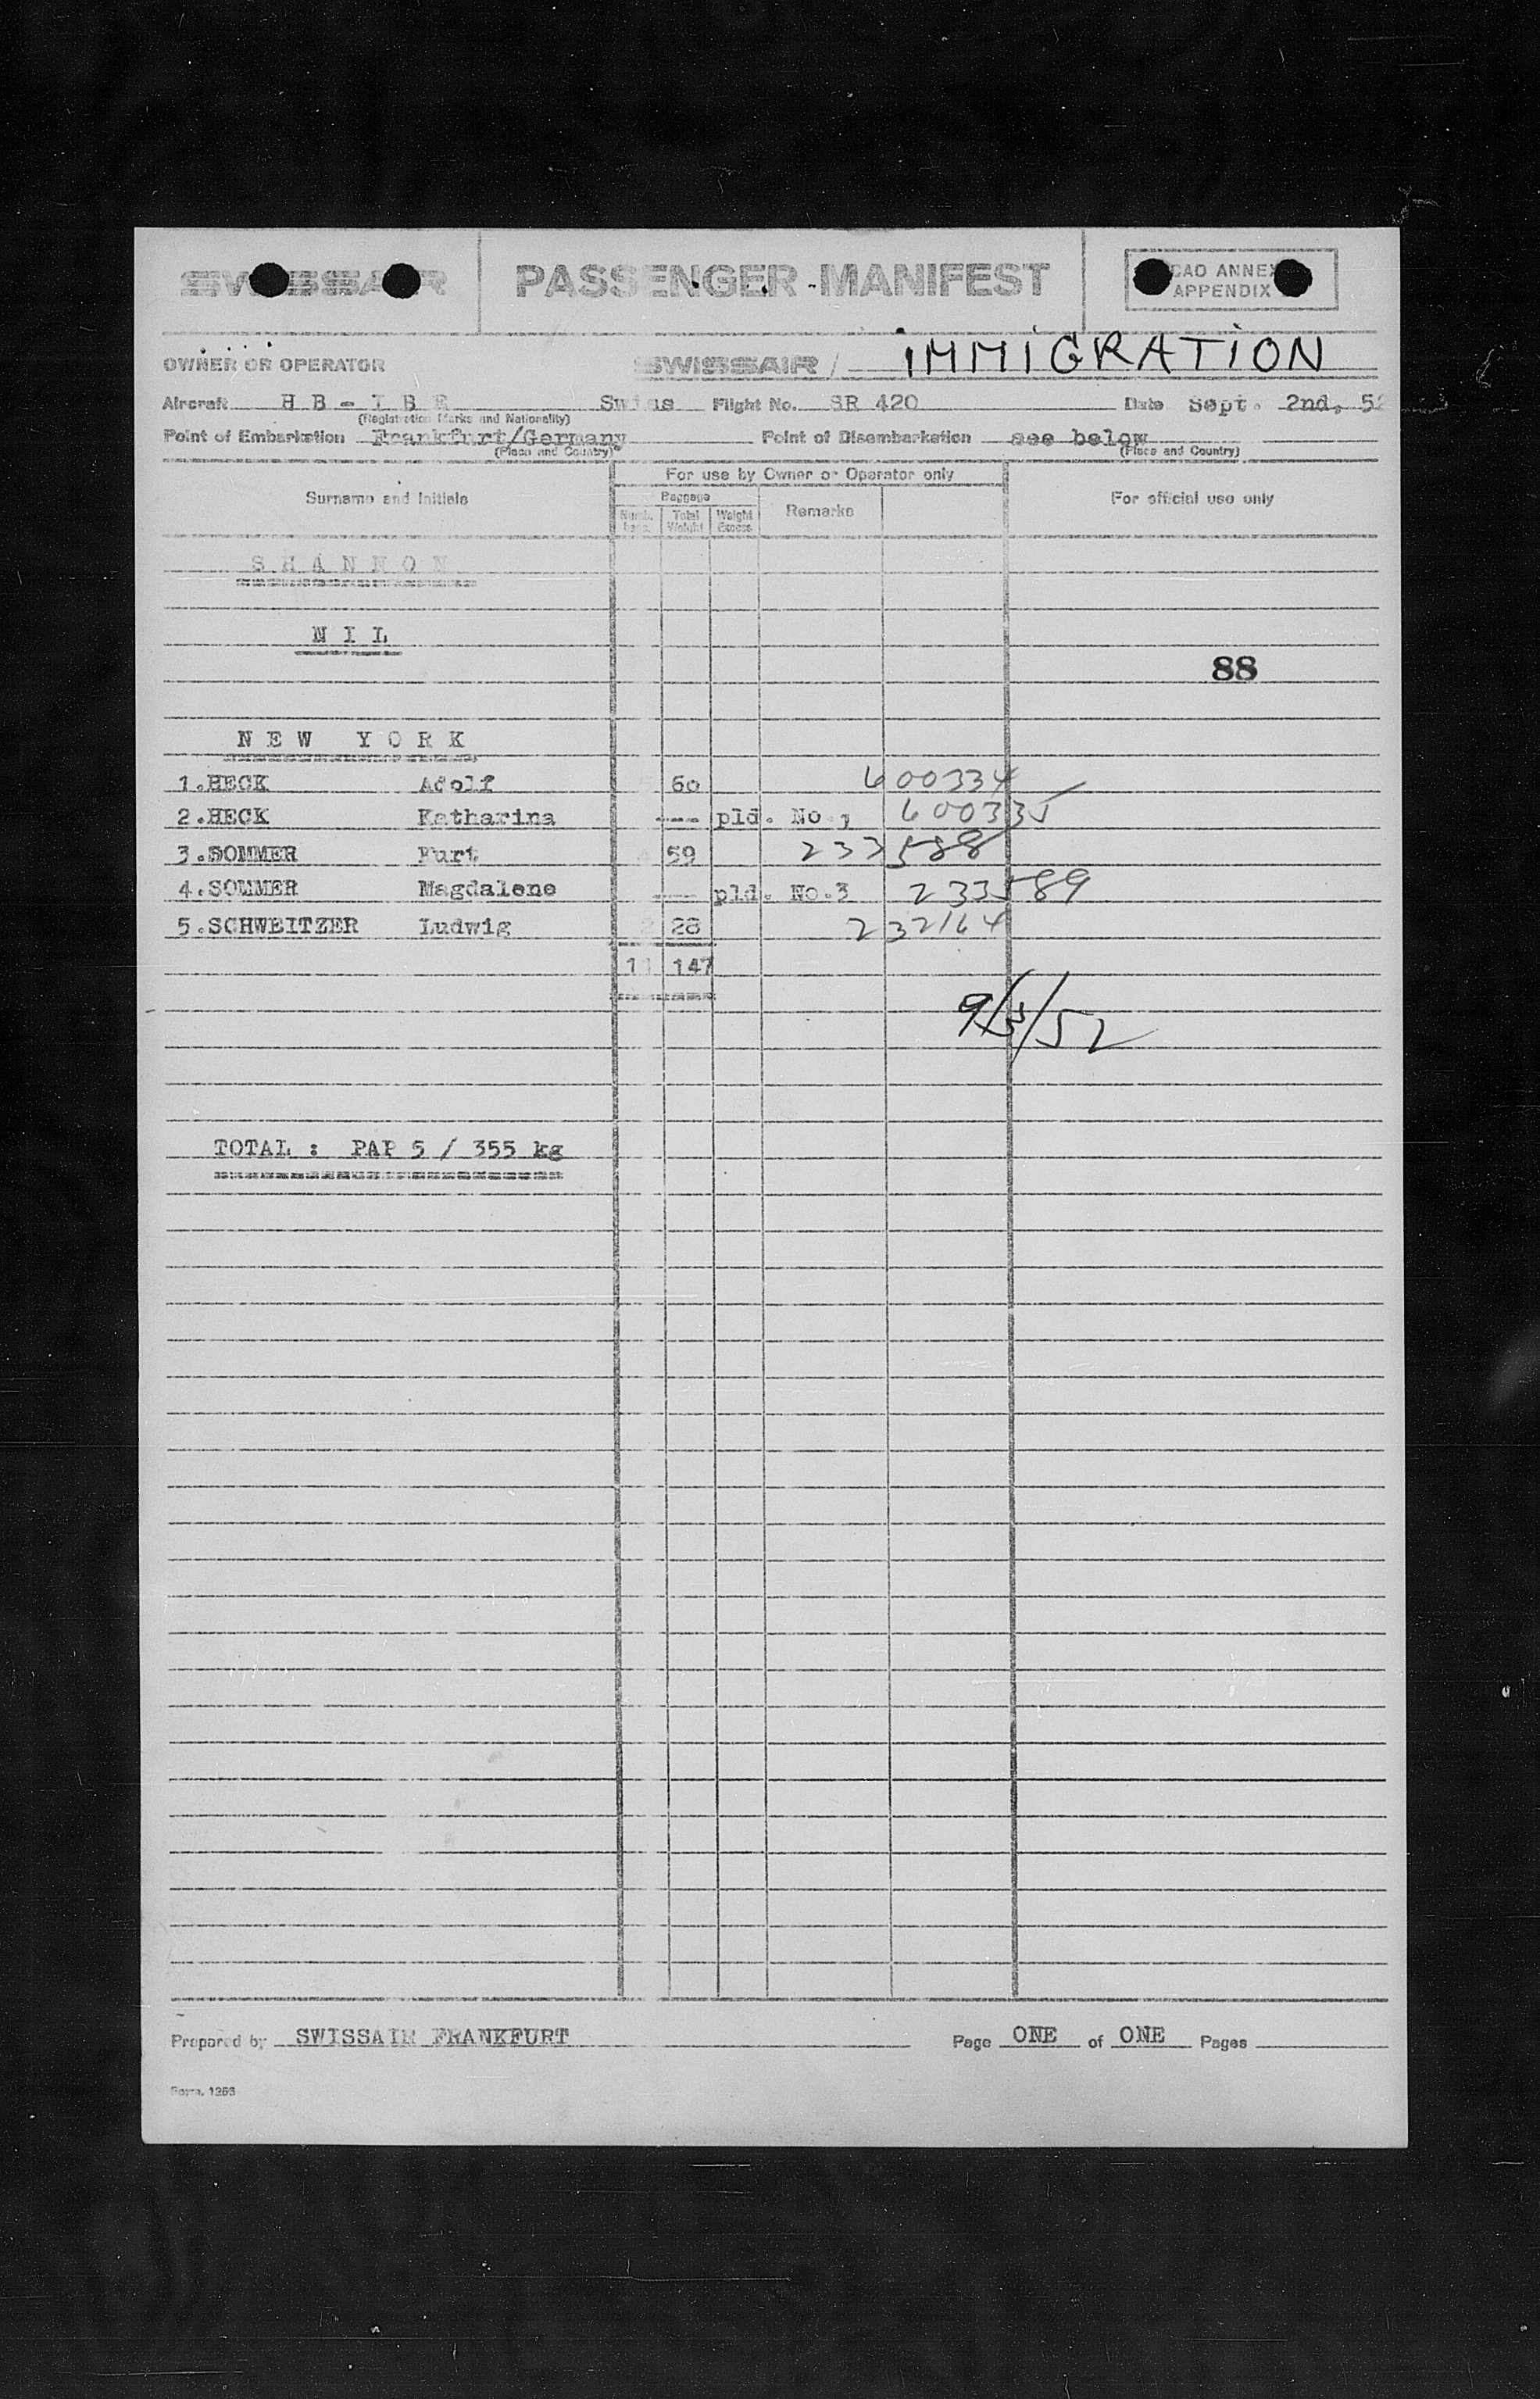 SWISSAIR PASSENGER MANIFEST ICAO ANNEX
APPENDIX
OWNER OR OPERATOR SWISSAIR / IMMIGRATION
Aircraft H B - I B E Swiss Flight No. SR 420 Date Sept. 2nd, 52
(Registration Marks and Nationality)
Point of Embarkation Frankfurt/Germany Point of Disembarkation see below
(Place and Country) (Place and Country)
For use by Owner or Operator only
Surname and Initials Baggage Remarks For official use only
Numb. Total Weight
Weight Excess
S H A N N O N
N I L
88
N E W Y O R K
1.HECK Adolf 60 600334
2.HECK Katharina --- pld. No., 600335
3.SOMMER Kurt 59 233588
4.SOMMER Magdalene --- pld. No.3 233589
5.SCHWEITZER Ludwig 2 28 232164
11 147
9/3/52
TOTAL : PAP 5 / 355 kg
Prepared by SWISSAIR FRANKFURT Page ONE of ONE Pages
Form. 1256